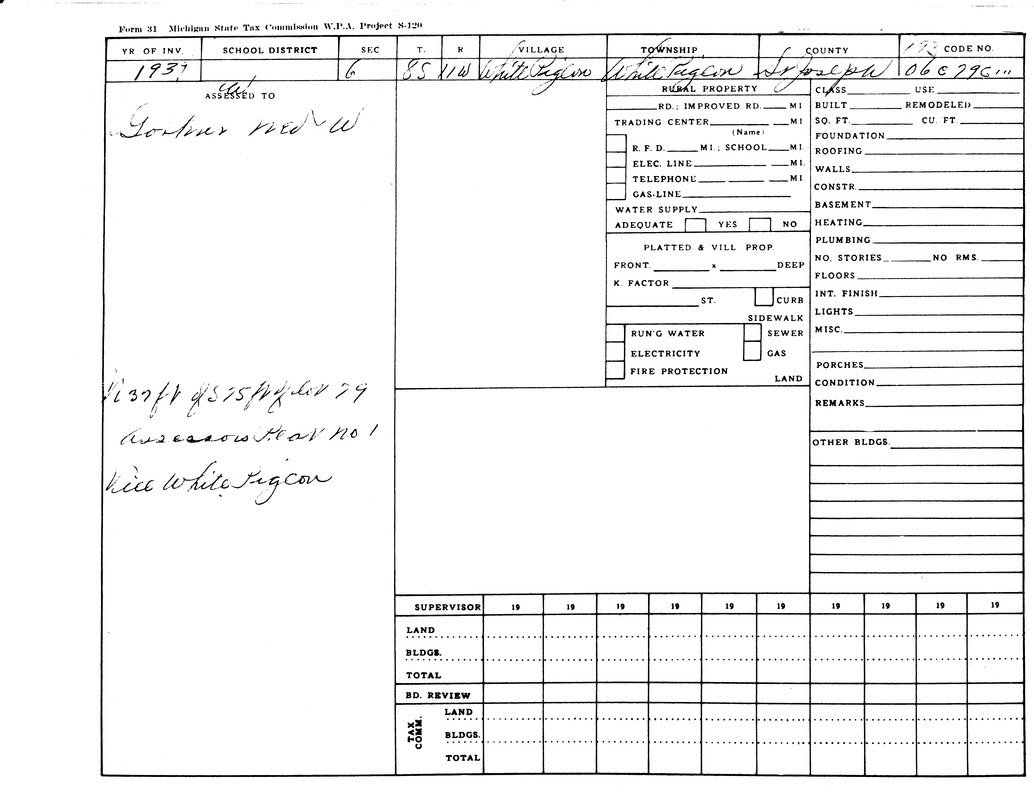 Form 31 Michigan State Tax Commission W.P.A. Project S-120
YR OF INV. SCHOOL DISTRICT SEC T. R VILLAGE TOWNSHIP COUNTY CODE NO.
1937 6 8S 11W White Pigeon White Pigeon St Joseph 06C 79C
ASSESSED TO
Ned W
RURAL PROPERTY
RD.; IMPROVED RD. MI
TRADING CENTER MI
(Name)
R. F. D. MI.; SCHOOL MI.
ELEC. LINE MI.
TELEPHONE MI.
GAS-LINE
WATER SUPPLY
ADEQUATE YES NO
PLATTED & VILL PROP.
FRONT. x DEEP
K. FACTOR
ST. CURB
SIDEWALK
RUN'G WATER SEWER
ELECTRICITY GAS
FIRE PROTECTION
LAND
CLASS USE
BUILT REMODELED
SQ. FT. CU. FT.
FOUNDATION
ROOFING
WALLS
CONSTR.
BASEMENT
HEATING
PLUMBING
NO. STORIES NO RMS.
FLOORS
INT. FINISH
LIGHTS
MISC.
PORCHES
CONDITION
REMARKS
OTHER BLDGS.
37 ft of S 75 ft of lot 79
Assessors Plat No 1
Vill White Pigeon
SUPERVISOR 19 19 19 19 19 19 19 19 19 19
LAND
BLDGS.
TOTAL
BD. REVIEW
TAX COMM.
LAND
BLDGS.
TOTAL